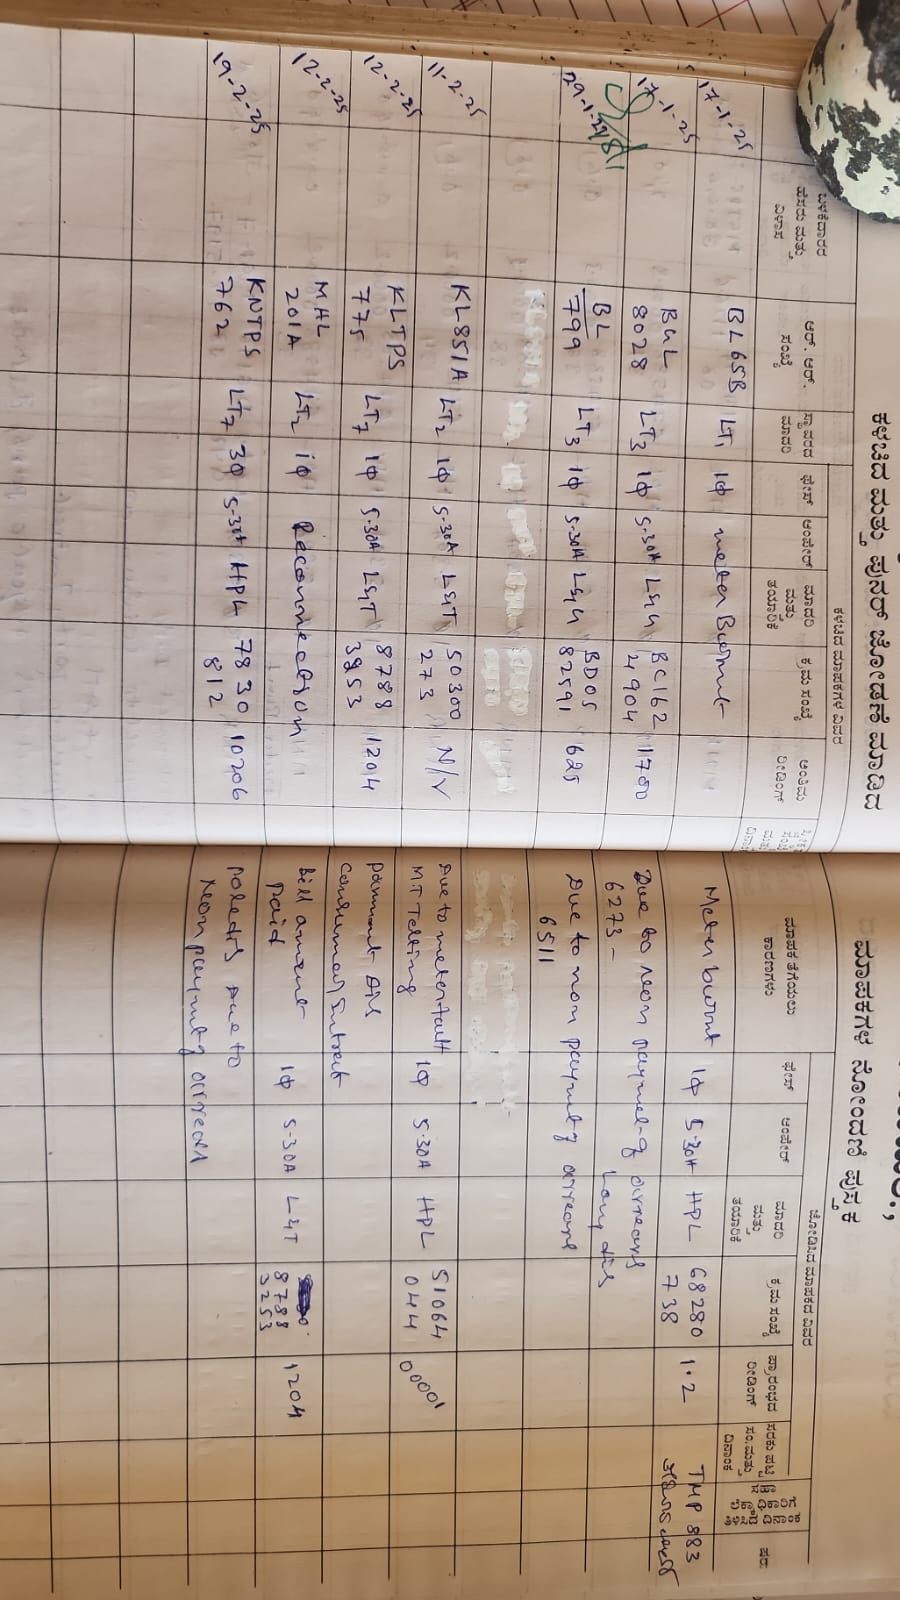 ಕಳಚಿದ ಮತ್ತು ಪುನರ್ ಜೋಡಣೆ ಮಾಡಿದ
ಮಾಪಕಗಳ ನೋಂದಣಿ ಪುಸ್ತಕ
ಕಳಚಿದ ಮಾಪಕಗಳ ವಿವರ
ಜೋಡಿಸಿದ ಮಾಪಕದ ವಿವರ
ಬಳಕೆದಾರರ ಹೆಸರು ಮತ್ತು ವಿಳಾಸ
ಆರ್. ಆರ್. ಸಂಖ್ಯೆ
ಸ್ಥಾವರದ ಮಾದರಿ
ಫೇಸ್
ಆಂಪೇರ್
ಮಾದರಿ ಮತ್ತು ತಯಾರಿಕೆ
ಕ್ರಮ ಸಂಖ್ಯೆ
ಅಂತಿಮ ರೀಡಿಂಗ್
ಮಾಪಕ ತೆಗೆಯಲು ಕಾರಣಗಳು
ಫೇಸ್
ಆಂಪೇರ್
ಮಾದರಿ ಮತ್ತು ತಯಾರಿಕೆ
ಕ್ರಮ ಸಂಖ್ಯೆ
ಪ್ರಾರಂಭದ ರೀಡಿಂಗ್
ಸಂ.ಮತ್ತು ದಿನಾಂಕ
ಲೆಕ್ಕಾಧಿಕಾರಿಗೆ ತಿಳಿಸಿದ ದಿನಾಂಕ
17-1-25 BL65B LT1 1Φ meter Burnt Meter burnt 1Φ 5-30A HPL 68280 1.2 TMP 883
738
17-1-25 BGL LT3 1Φ 5-30A L&G BC162 1700 Due to non paymet of arrears
8028 24904 6273 - Long dis
29-1-25 BL LT3 1Φ 5-30A L&G BD05 625 Due to non paymt of arrears
799 82591 6511
11-2-25 KL851A LT2 1Φ 5-30A L&T 50300 N/V Due to meter fault 1Φ 5-30A HPL 51064 00001
273 M.T Testing 044
12-2-25 KLTPS LT7 1Φ 5-30A L&T 8788 1204
775 3253 consumer
12-2-25 MHL LT2 1Φ Reconnection Bill amount 1Φ 5-30A L&T 8788 1204
201A paid 3253
19-2-25 KNTPS LT7 3Φ 5-30A HPL 7830 10206 due to
762 812 Non paymt of arrears